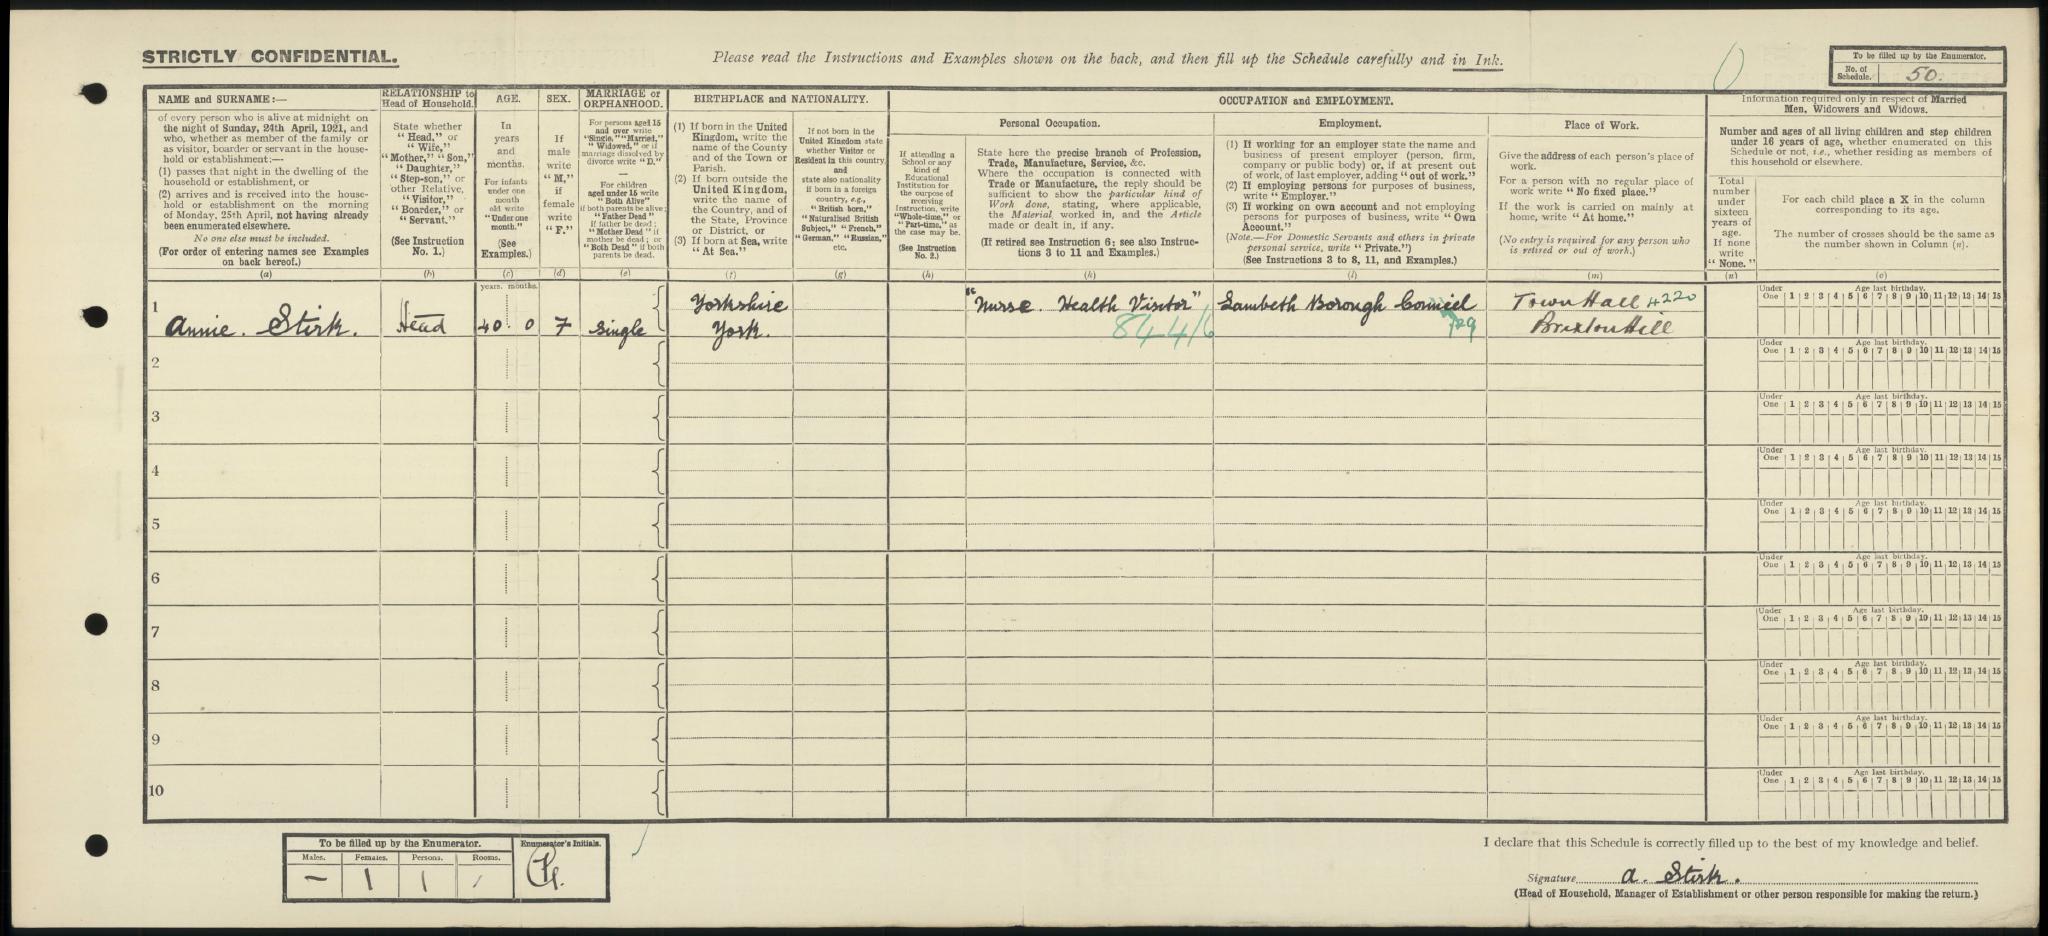 STRICTLY CONFIDENTIAL.
Please read the Instructions and Examples shown on the back, and then fill up the Schedule carefully and in Ink.
To be filled up by the Enumerator.
No. of Schedule. 50.
NAME and SURNAME:—
of every person who is alive at midnight on
the night of Sunday, 24th April, 1921, and
who, whether as member of the family or
as visitor, boarder or servant in the house-
hold or establishment:—
(1) passes that night in the dwelling of the
household or establishment, or
(2) arrives and is received into the house-
hold or establishment on the morning
of Monday, 25th April, not having already
been enumerated elsewhere.
No one else must be included.
(For order of entering names see Examples
on back hereof.)
(a)
RELATIONSHIP to
Head of Household.
State whether
"Head," or
"Wife,"
"Mother," "Son,"
"Daughter,"
"Step-son," or
other Relative,
"Visitor,"
"Boarder," or
"Servant."
(See Instruction
No. 1.)
(b)
AGE.
In
years
and
months.
For infants
under one
month
old write
"Under one
month."
(See
Examples.)
(c)
SEX.
If
male
write
"M,"
if
female
write
"F."
(d)
MARRIAGE or
ORPHANHOOD.
For persons aged 15
and over write
"Single," "Married,"
"Widowed," or if
marriage dissolved by
divorce write "D."
—
For children
aged under 15 write
"Both Alive"
if both parents be alive;
"Father Dead"
if father be dead;
"Mother Dead" if
mother be dead; or
"Both Dead" if both
parents be dead.
(e)
BIRTHPLACE and NATIONALITY.
(1) If born in the United
Kingdom, write the
name of the County
and of the Town or
Parish.
(2) If born outside the
United Kingdom,
write the name of
the Country, and of
the State, Province
or District, or
(3) If born at Sea, write
"At Sea."
(f)
If not born in the
United Kingdom state
whether Visitor or
Resident in this country,
and
state also nationality
if born in a foreign
country, e.g.,
"British born,"
"Naturalised British
Subject," "French,"
"German," "Russian,"
etc.
(g)
OCCUPATION and EMPLOYMENT.
If attending a
School or any
kind of
Educational
Institution for
the purpose of
receiving
Instruction, write
"Whole-time," or
"Part-time," as
the case may be.
(See Instruction
No. 2.)
(h)
Personal Occupation.
State here the precise branch of Profession,
Trade, Manufacture, Service, &c.
Where the occupation is connected with
Trade or Manufacture, the reply should be
sufficient to show the particular kind of
Work done, stating, where applicable,
the Material worked in, and the Article
made or dealt in, if any.
(If retired see Instruction 6; see also Instruc-
tions 3 to 11 and Examples.)
(k)
Employment.
(1) If working for an employer state the name and
business of present employer (person, firm,
company or public body) or, if at present out
of work, of last employer, adding "out of work."
(2) If employing persons for purposes of business,
write "Employer."
(3) If working on own account and not employing
persons for purposes of business, write "Own
Account."
(Note.—For Domestic Servants and others in private
personal service, write "Private.")
(See Instructions 3 to 8, 11, and Examples.)
(l)
Place of Work.
Give the address of each person's place of
work.
For a person with no regular place of
work write "No fixed place."
If the work is carried on mainly at
home, write "At home."
(No entry is required for any person who
is retired or out of work.)
(m)
Information required only in respect of Married
Men, Widowers and Widows.
Number and ages of all living children and step children
under 16 years of age, whether enumerated on this
Schedule or not, i.e., whether residing as members of
this household or elsewhere.
Total
number
under
sixteen
years of
age.
If none
write
"None."
(n)
For each child place a X in the column
corresponding to its age.
The number of crosses should be the same as
the number shown in Column (n).
(o)
years. months.
1
Annie. Stirk.
Head
40. 0
F
Single
Yorkshire
York.
"Nurse. Health Visitor"
844/6
Lambeth Borough Council
Town Hall 4220
Brixton Hill
Under One Age last birthday. 1 2 3 4 5 6 7 8 9 10 11 12 13 14 15
2
Under One Age last birthday. 1 2 3 4 5 6 7 8 9 10 11 12 13 14 15
3
Under One Age last birthday. 1 2 3 4 5 6 7 8 9 10 11 12 13 14 15
4
Under One Age last birthday. 1 2 3 4 5 6 7 8 9 10 11 12 13 14 15
5
Under One Age last birthday. 1 2 3 4 5 6 7 8 9 10 11 12 13 14 15
6
Under One Age last birthday. 1 2 3 4 5 6 7 8 9 10 11 12 13 14 15
7
Under One Age last birthday. 1 2 3 4 5 6 7 8 9 10 11 12 13 14 15
8
Under One Age last birthday. 1 2 3 4 5 6 7 8 9 10 11 12 13 14 15
9
Under One Age last birthday. 1 2 3 4 5 6 7 8 9 10 11 12 13 14 15
10
Under One Age last birthday. 1 2 3 4 5 6 7 8 9 10 11 12 13 14 15
To be filled up by the Enumerator.
Males. Females. Persons. Rooms.
– 1 1 1
Enumerator's Initials.
I declare that this Schedule is correctly filled up to the best of my knowledge and belief.
Signature A. Stirk.
(Head of Household, Manager of Establishment or other person responsible for making the return.)